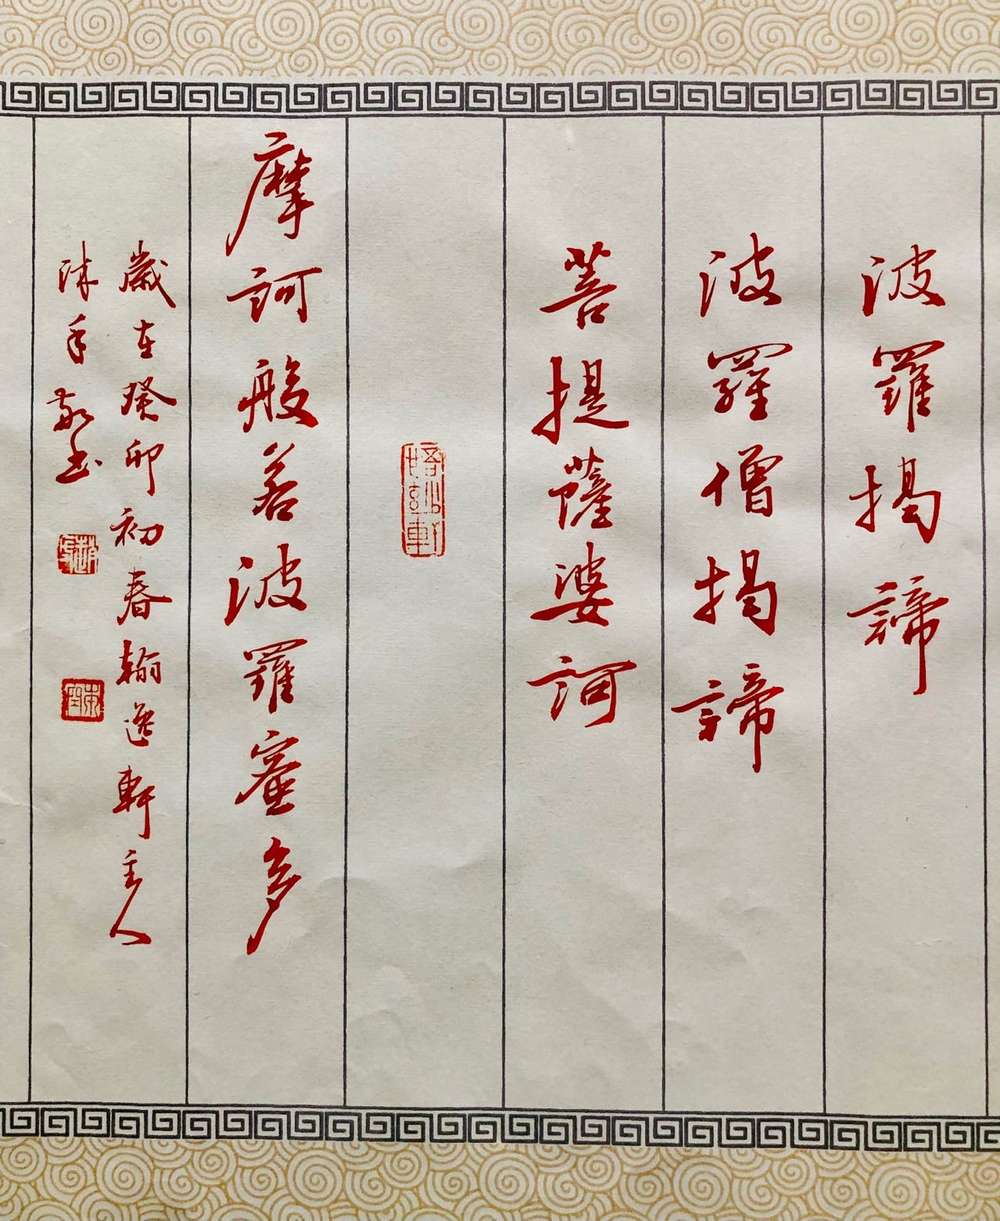 波羅揭諦
波羅僧揭諦
菩提薩婆訶
摩訶般若波羅蜜多
歲在癸卯初春翰逸軒主人
沐手敬书